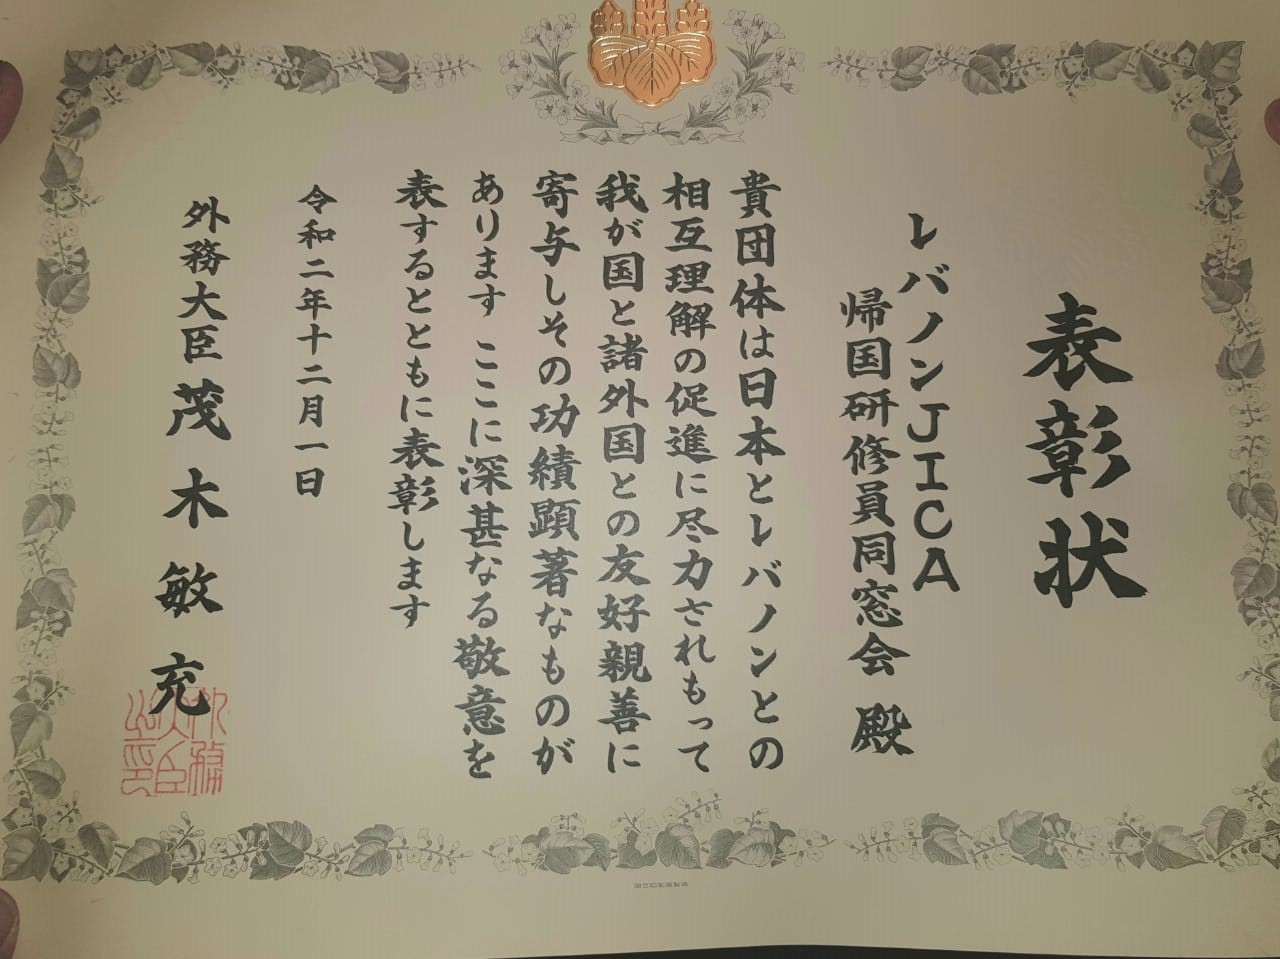 表彰状
レバノンJICA
帰国研修員同窓会 殿
貴団体は日本とレバノンとの
相互理解の促進に尽力されもって
我が国と諸外国との友好親善に
寄与しその功績顕著なものが
あります ここに深甚なる敬意を
表するとともに表彰します
令和二年十二月一日
外務大臣 茂木敏充
外務
大臣
之印